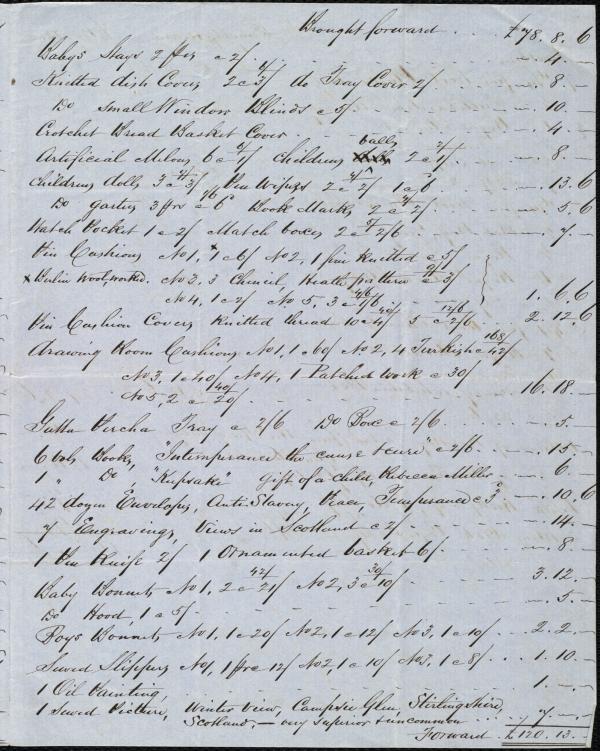 Brought forward . . . £78. 8. 6
Babys Stays 2 prs @ 2/ - - - 4. -
Knitted dish Covers 2 @ 3/ 4/ do Tray Cover 2/ - - 8. -
Do Small Window Blinds @ 5/ - - 10. -
Crotchet Bread Basket Cover - - - 4. -
Artificial Melons 6 @ 1/ 6/ Childrens balls 2 @ 1/ 2/ - - 8. -
Childrens dolls 3 @ 3/ Pen Wipers 2 @ 2/ 4/ 1 @ 6 - - 13. 6
Do garters 3 prs @ 6 1/6 Book Marks 2 @ 2/ 4/ - - 5. 6
Watch Pocket 1 @ 2/ Match boxes 2 @ 2/6 5/ - - 7. -
Pin Cushions No 1, 1 @ 6/ No 2, 1 fine Knitted @ 5/
x Berlin wool, worked. No 3, 3 Chenil, Heath pattern @ 3/ 9/
No 4, 1 @ 2/ No 5, 3 @ 1/6 4/6 - - 1. 6. 6
Pin Cushion Covers Knitted thread 10 @ 4/ 40/ 5 @ 2/6 12/6 - 2. 12. 6
Drawing Room Cushions No 1, 1 @ 60/ No 2, 4 Turkish @ 42/ 168/
No 3, 1 @ 40/ No 4, 1 Patched work @ 30/
No 5, 2 @ 20/ 40/ - - - 16. 18. -
Gutta Percha Tray @ 2/6 Do Box @ 2/6 - - 5. -
6 vols Books, "Intemperance the cause & cure" @ 2/6 - - 15. -
1 " Do, "Keepsake" gift of a child, Rebecca Miller - - 6 -
42 dozen Envelopes, Anti-Slavery, Peace, Temperance @ 3 - . 10. 6
7 Engravings, Views in Scotland @ 2/ - - 14. -
1 Pen Knife 2/ 1 Ornamented basket 6/ - - 8. -
Baby Bonnets No 1, 2 @ 21/ 42/ No 2, 3 @ 10/ 30/ - - 3. 12. -
Do Hood, 1 @ 5/ - - - 5. -
Boys Bonnets No 1, 1 @ 20/ No 2, 1 @ 12/ No 3, 1 @ 10/ - - 2. 2. -
Sewed Slippers No 1, 1 pr @ 12/ No 2, 1 @ 10/ No 3, 1 @ 8/ . . . 1. 10.
1 Oil Painting, - - - 1. - .
1 Sewed Picture, Winter View, Campsie Glen, Stirlingshire,
Scotland, - very superior & uncommon . . . 7. - . -
Forward . £120. 13. -